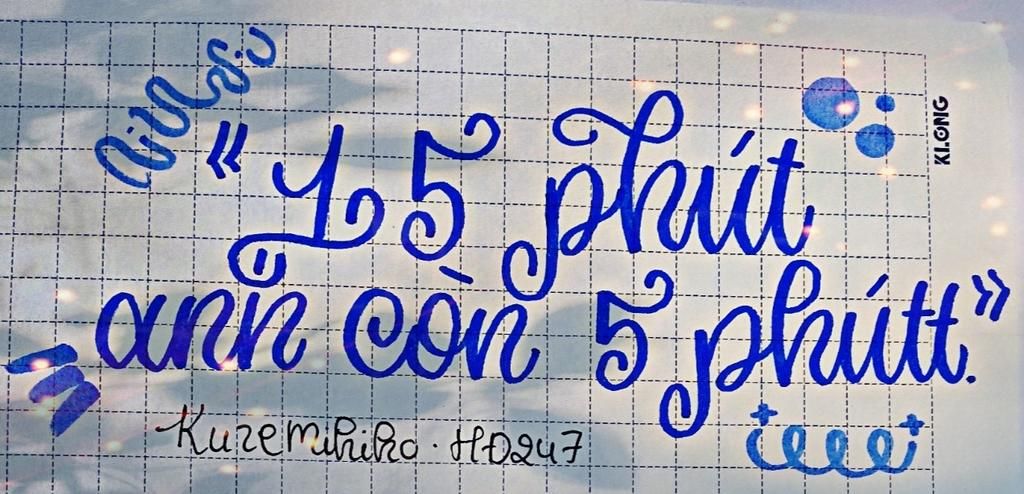 « 15 phút
KLONG
anh còn 5 phútt.»
Kuzemihiko . HD247